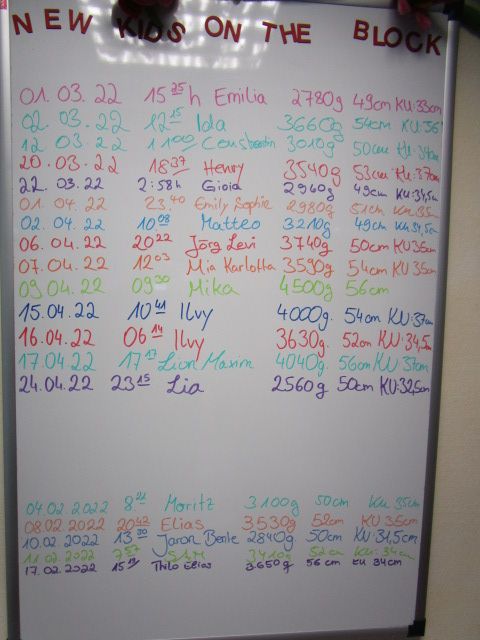 NEW KIDS ON THE BLOCK
01.03.22 15 25 h Emilia 2780g 49cm KU:33cm
02.03.22 12 15 Ida 3660g 54cm KU:36
12.03.22 11 00 Constantin 3010g 50cm KU:34cm
20.03.22 18 37 Henry 3540g 53cm KU:37cm
22.03.22 2:58h Gioia 2960g 49cm KU:34,5cm
01.04.22 23 40 Emily Sophie 2980g 51cm KU:35
02.04.22 10 08 Matteo 3210g 49cm KU:31,5cm
06.04.22 20 22 Jörg Levi 3740g 50cm KU 35cm
07.04.22 12 03 Mia Karlotta 3590g 54cm KU 35cm
09.04.22 09 30 Mika 4500g 56cm
15.04.22 10 41 Ilvy 4000g. 54cm KU:37cm
16.04.22 06 14 Ilvy 3630g. 52cm KU:34,5cm
17.04.22 17 17 Lion Maxim 4040g. 56cm KU 37cm
24.04.22 23 15 Lia 2560g 50cm KU:32,5cm
04.02.2022 8. 21 Moritz 3100g 50cm KU 35cm
08.02.2022 20 42 Elias 3530g 52cm KU 36cm
10.02.2022 13 30 Jaron 2840g 50cm KU:31,5cm
11.02.2022 7 57 3410g 52cm KU: 34cm
17.02.2022 15 Thilo Elias 3650g 56cm KU 34cm